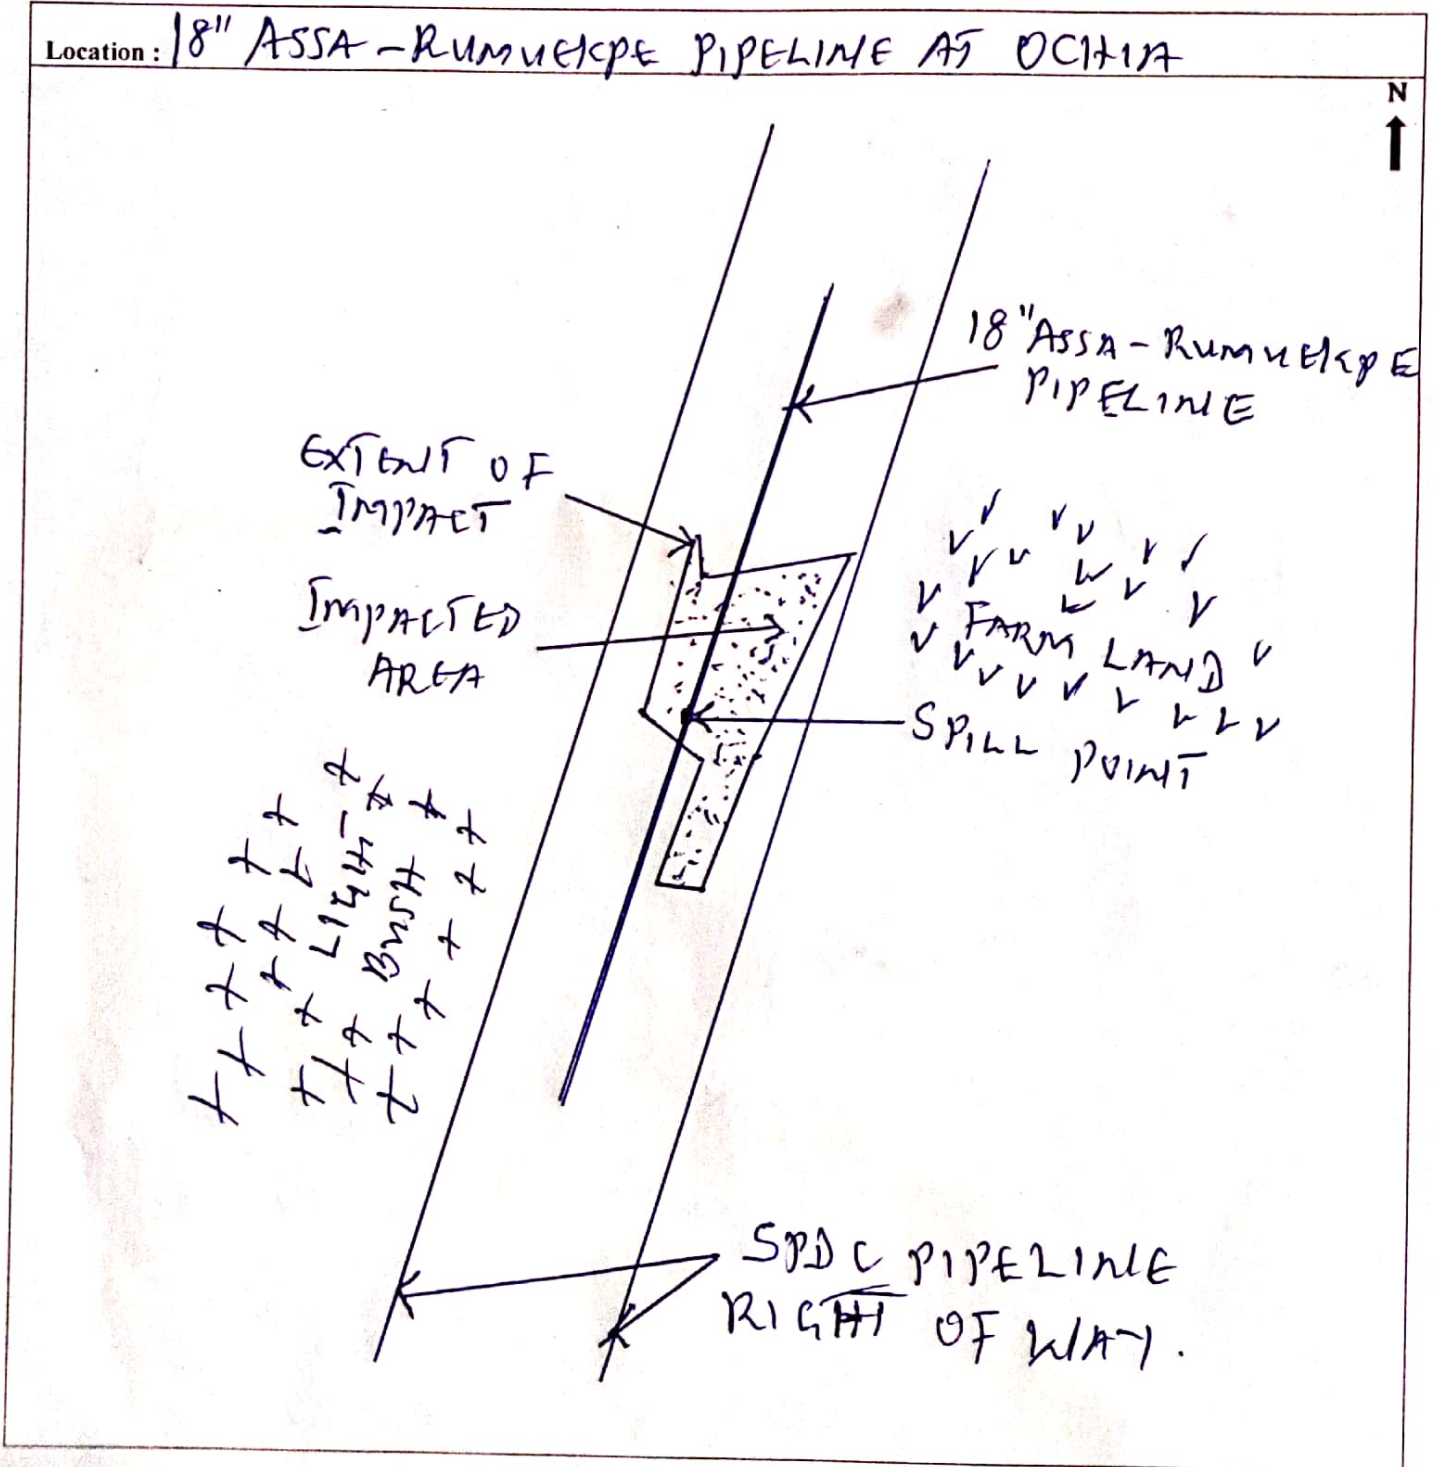 Location : 18" ASSA-RUMUEKPE PIPELINE AT OCHIA
N
18" ASSA-RUMUEKPE
PIPELINE
EXTENT OF
IMPACT
IMPACTED
AREA
FARM LAND
SPILL POINT
LIGHT
BUSH
SPDC PIPELINE
RIGHT OF WAY.